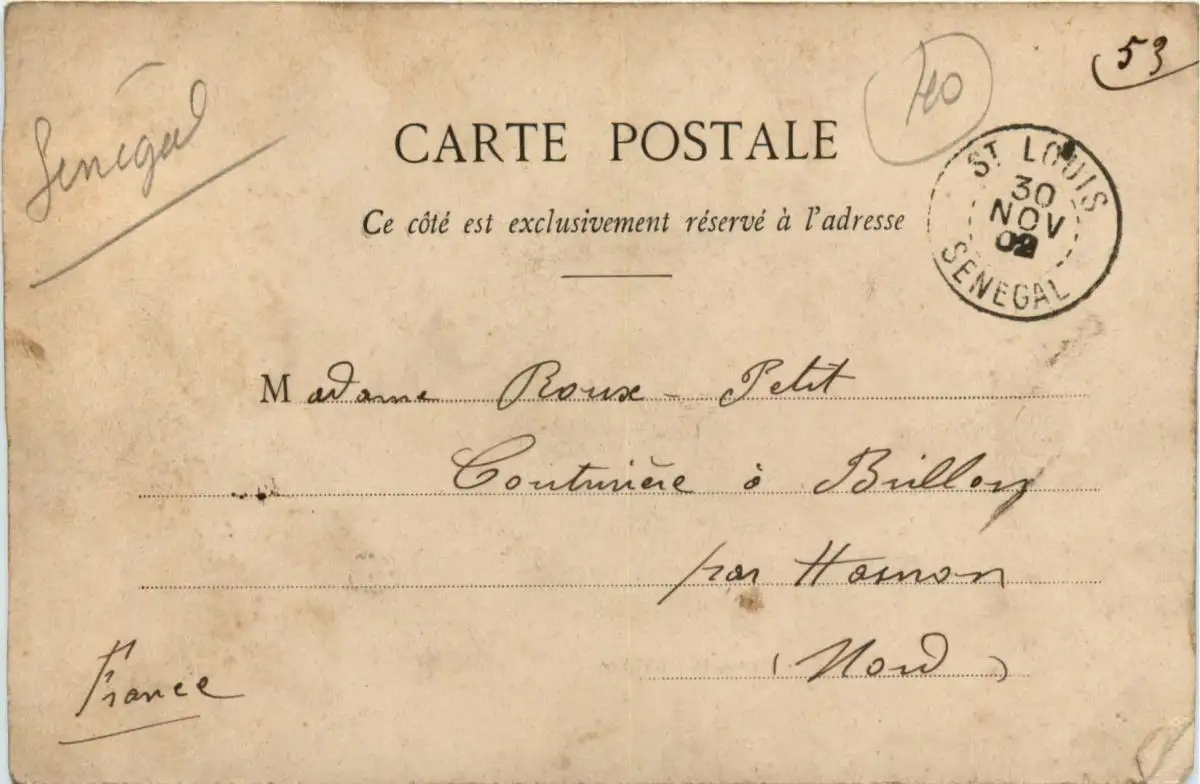 53
40
Sénégal
CARTE POSTALE
Ce côté est exclusivement réservé à l'adresse
ST LOUIS
30
NOV
02
SENEGAL
Madame Roux-Petit
Couturière à Brillon
par Hasnon
(Nord)
France